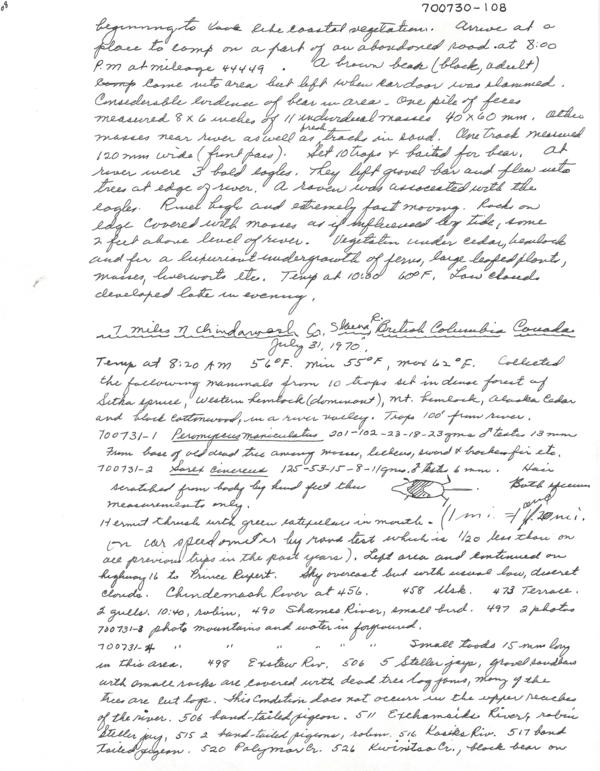 700730-108
beginning to look like coastal vegetation. Arrive at a
place to camp on a part of an abandoned road at 8:00
P.M at mileage 44449. A brown bear (black, adult)
camp come into area but left when car door was slammed.
Considerable evidence of bear in area - One pile of feces
measured 8 x 6 inches of 11 individual masses 40 x 60 mm. Other
masses near river as well as fresh tracks in sand. One track measured
120 mm wide (front paw). Set 10 traps & baited for bear. At
river were 3 bald eagles. They left gravel bar and flew into
trees at edge of river. A raven was associated with the
eagles. River high and extremely fast moving. Rocks on
edge covered with mosses as if influenced by tide, some
2 feet above level of river. Vegetation under cedar, hemlock
and fir a luxuriant undergrowth of ferns, large leafed plants,
mosses, liverworts etc. Temp at 10:30 60°F. Low clouds
developed late in evening.
7 miles N Chindamash Cr, Skeena R. British Columbia Canada
July 31, 1970.
Temp at 8:20 AM 56°F. min 55°F, max 62°F. Collected
the following mammals from 10 traps set in dense forest of
Sitka spruce, western hemlock (dominant), Mt. hemlock, Alaska Cedar
and black cottonwood, in a river valley. Traps 100' from river.
700731-1 Peromyscus maniculatus 201-102-23-18-23gms ♂ testes 13 mm
From base of old dead tree among mosses, lichens, sword & bracken fir etc.
700731-2 Sorex cinereus 125-53-15-8-11gms. ♂ testes 6 mm. Hair
scratched from body by hind feet then Both specimen
measurements only.
Hermit thrush with green caterpillar in mouth. (1 mi. = 1/20 mi.
on car speedometer by road test which is 1/20 less than on
all previous trips in the past years). Left area and continued on
highway 16 to Prince Rupert. Sky overcast but with usual low, discret
clouds. Chindemash River at 456. 458 Usk. 473 Terrace.
2 gulls. 10:40, robin, 490 Shames River, small bird. 497 2 photos
700731-3 photo mountains and water in forground.
700731-4 " " " " " " Small toads 15 mm long
in this area. 498 Exstew Riv. 506 5 Steller jays, gravel sandbars
with small rocks are covered with dead tree log jams, many of the
trees are cut logs. This condition does not occur in the upper reaches
of the river. 506 band-tailed pigeon. 511 Exchamsiks River, robin
Steller jay, 515 2 band-tailed pigeons, robin. 516 Kasiks Riv. 517 band
tailed pigeon. 520 Polymar Cr. 526 Kwinitsa Cr., black bear on